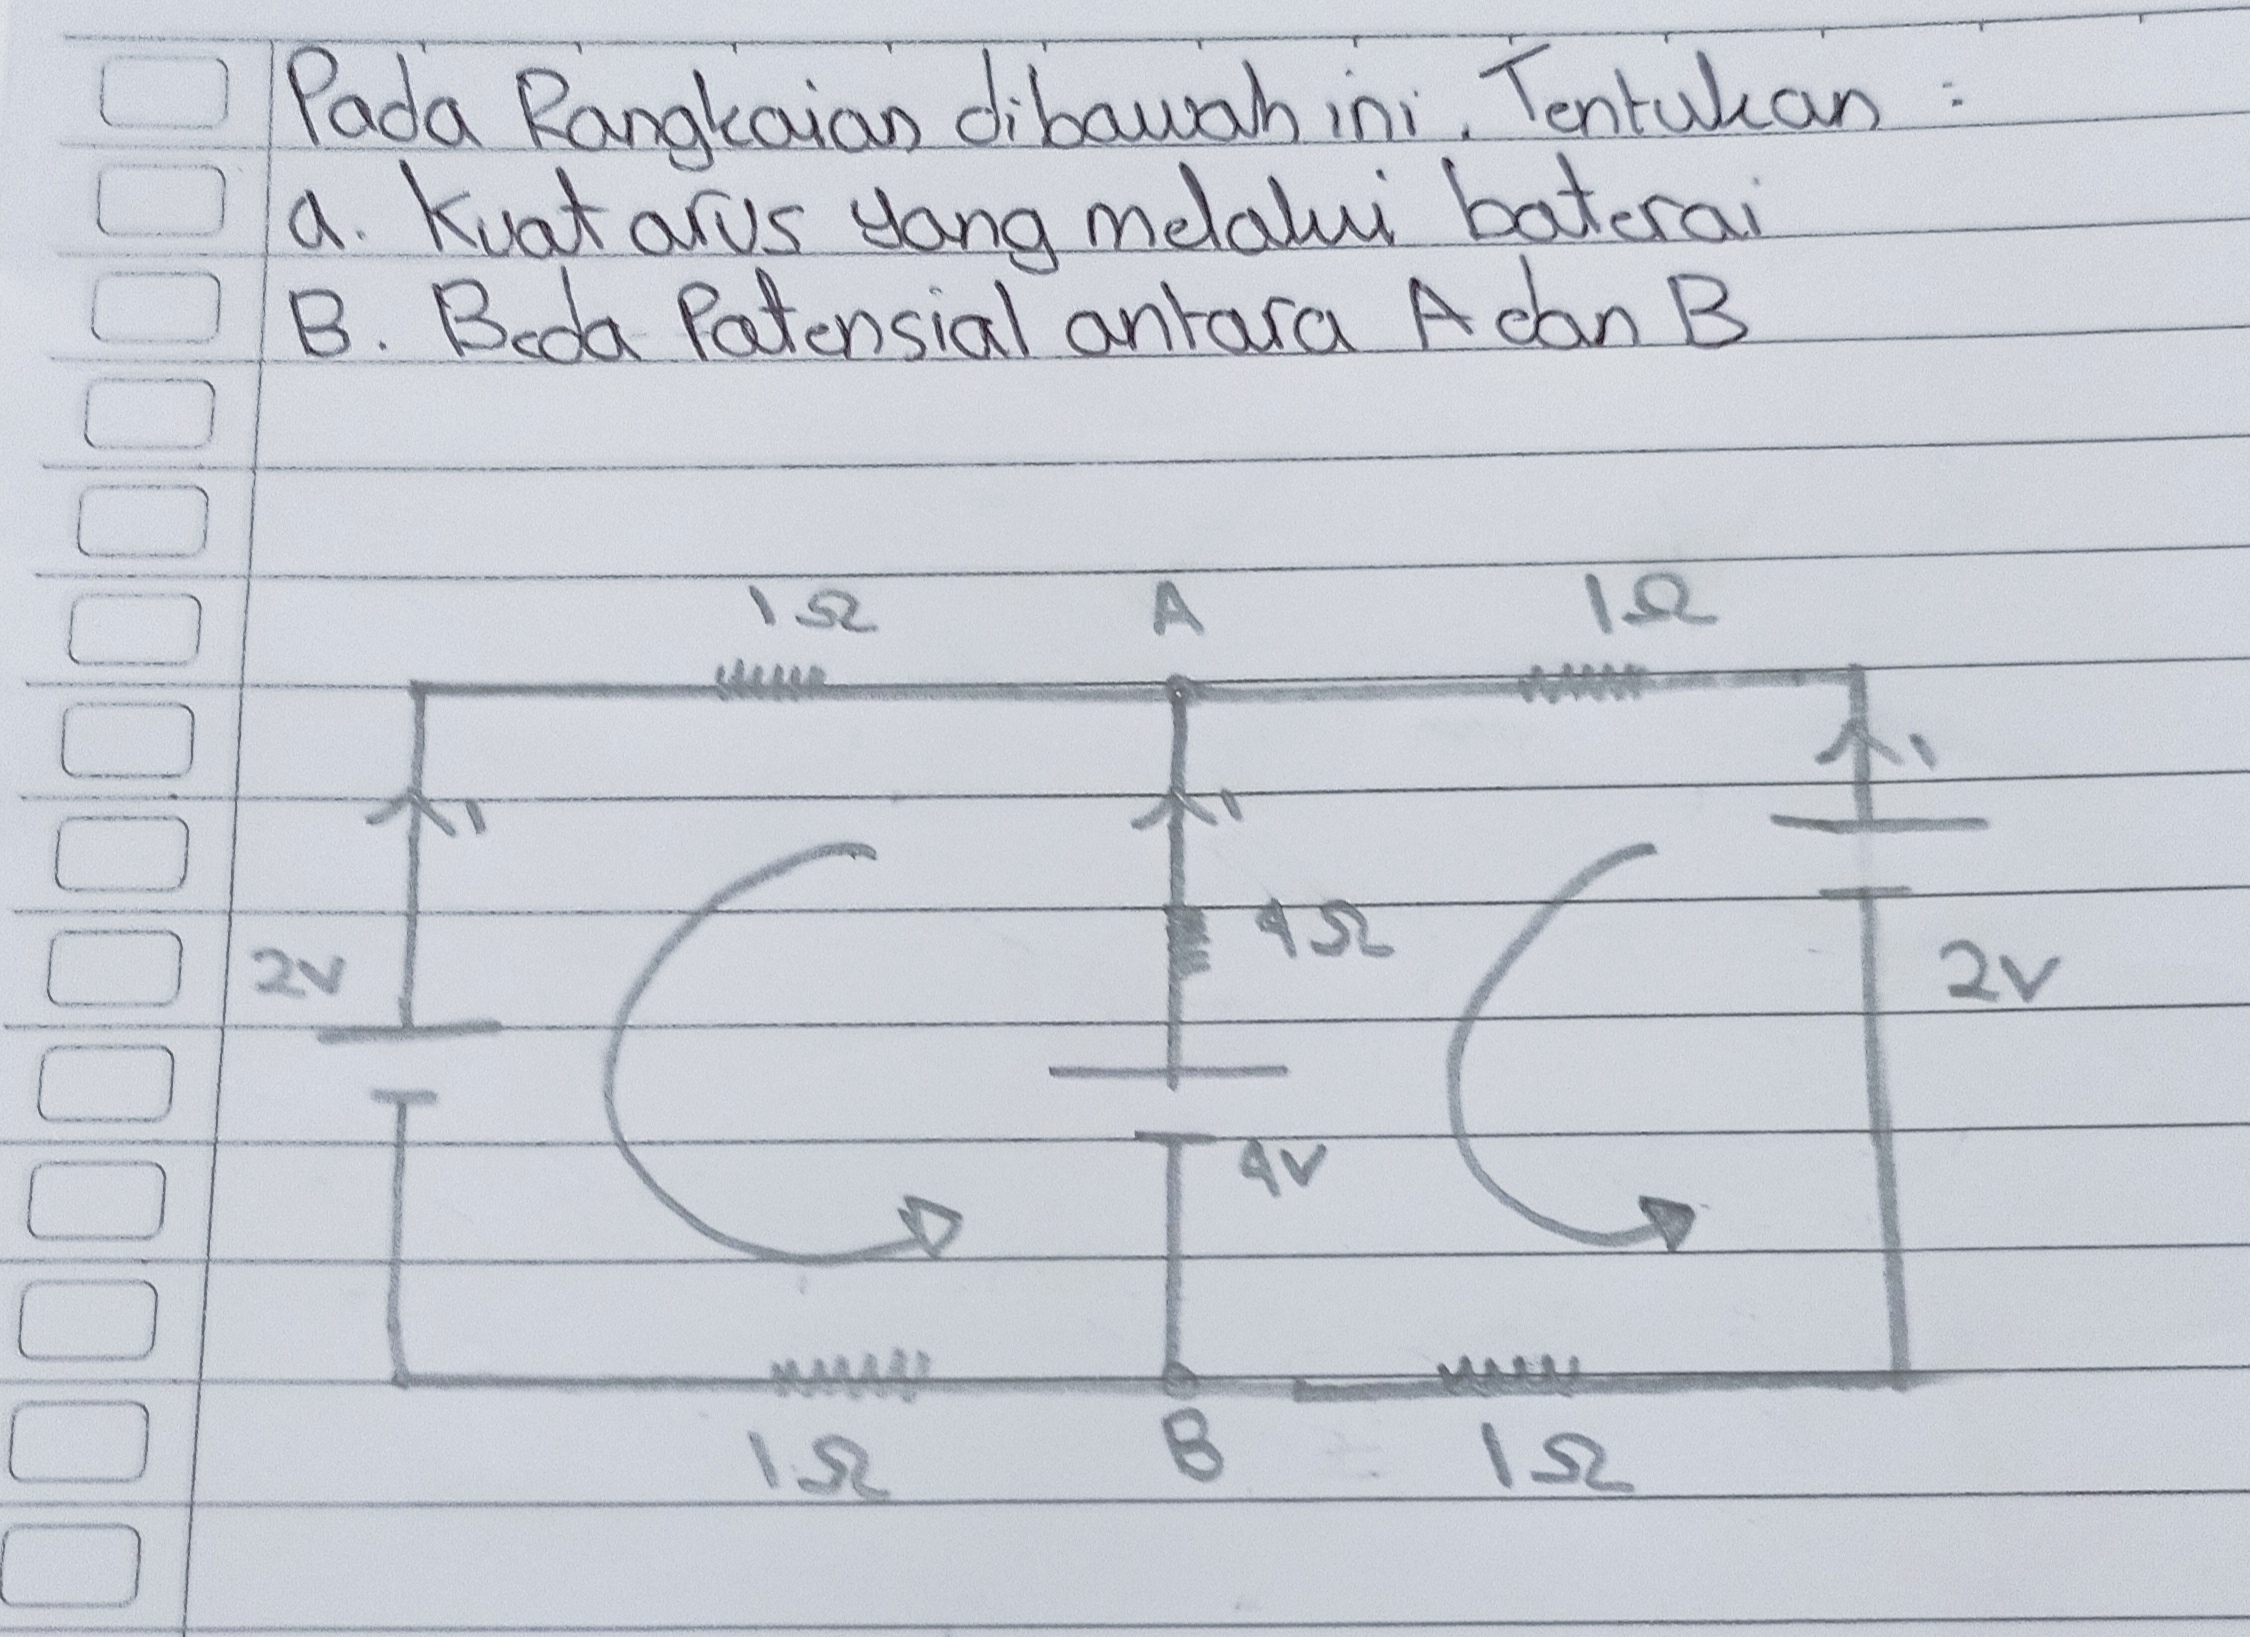 Pada Rangkaian dibawah ini. Tentukan :
a. Kuat arus yang melalui baterai
B. Beda Potensial antara A dan B
1Ω A 1Ω
1 1 1
4Ω
2V 2V
4V
1Ω B 1Ω